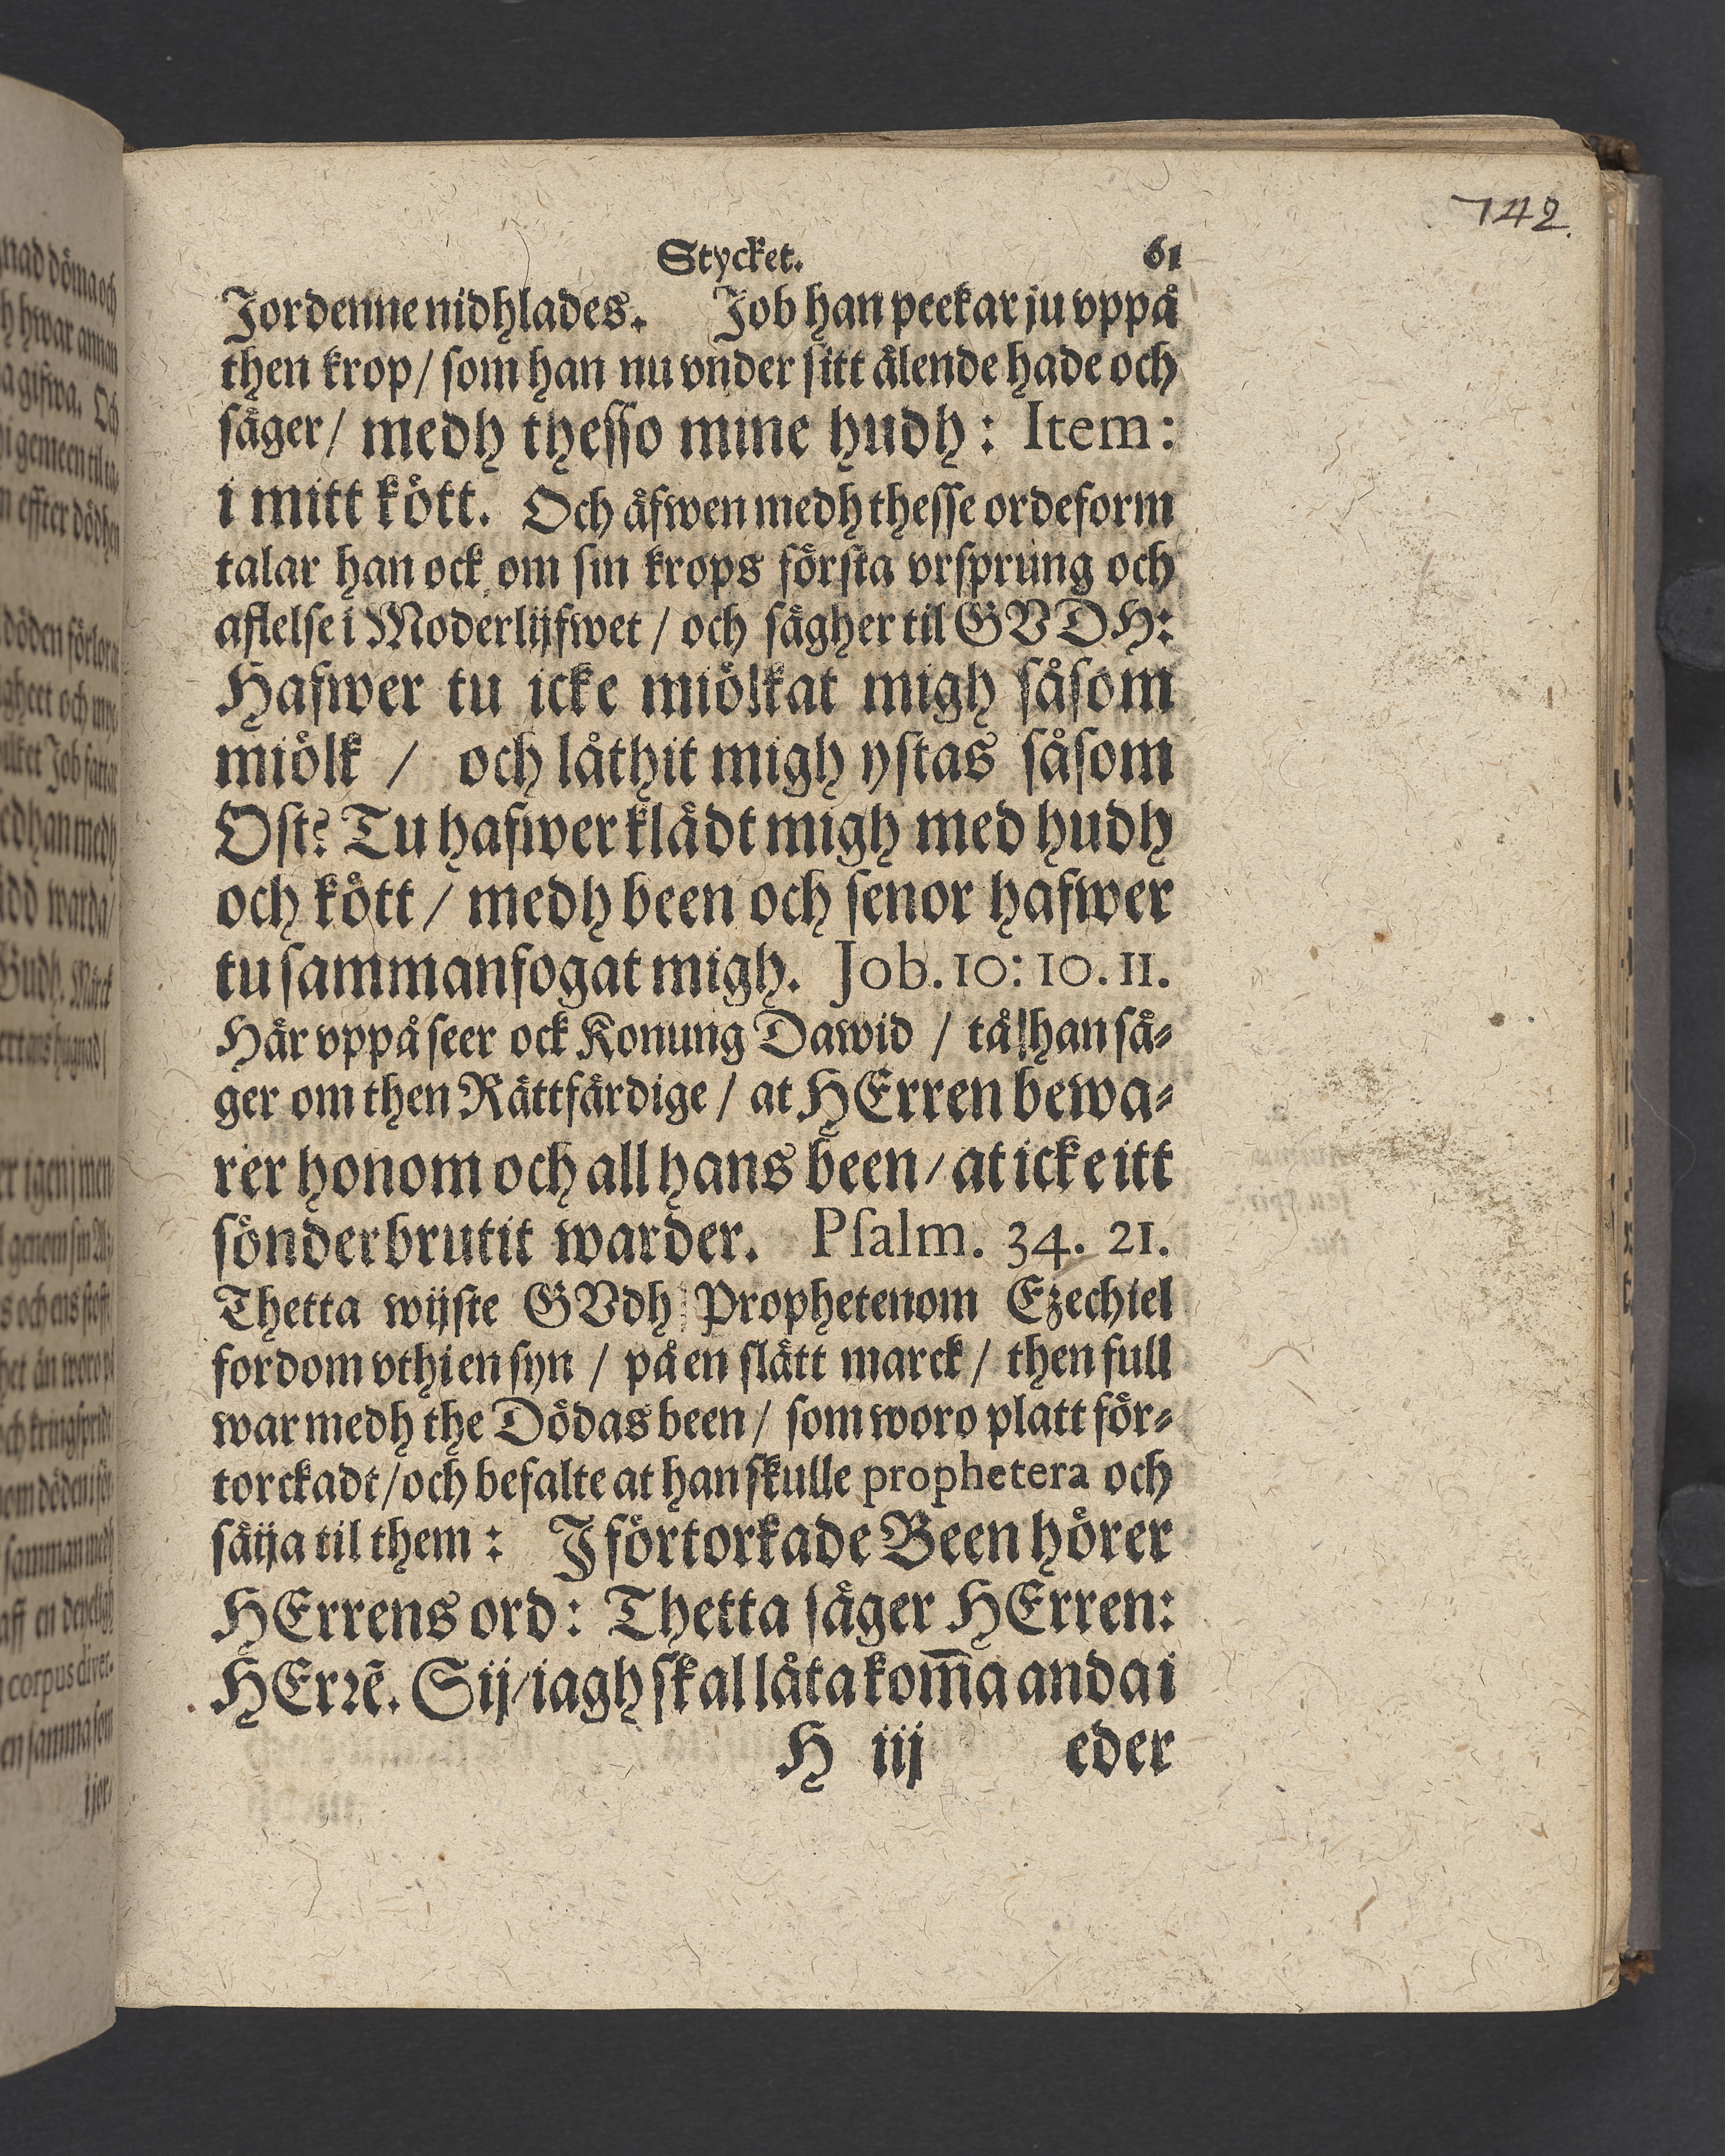 742.
Stycket. 61
Jordenne nidhlades. Job han peekar ju vppå
then krop/ som han nu vnder sitt älende hade och
säger/ medh thesso mine hudh: Item:
i mitt kött. Och äfwen medh thesse ordeform
talar han ock om sin krops första vrsprung och
aflelse i Moderlijfwet / och sägher til GVDH:
Hafwer tu icke miölkat migh såsom
miölk / och låthit migh ystas såsom
Ost? Tu hafwer klädt migh med hudh
och kött / medh been och senor hafwer
tu sammanfogat migh. Job. 10: 10. 11.
Här vppå seer ock Konung Dawid / tå han sä-
ger om then Rättfärdige / at HErren bewa-
rer honom och all hans been / at icke itt
sönderbrutit warder. Psalm. 34. 21.
Thetta wijste GVdh Prophetenom Ezechiel
fordom vthi en syn / på en slätt marck / then full
war medh the Dödas been / som woro platt för-
torckadt/ och befalte at han skulle prophetera och
säija til them: J förtorkade Been hörer
HErrens ord: Thetta säger HErren:
HErrē. Sij/ iagh skal låta kom̅a anda i
H iij eder